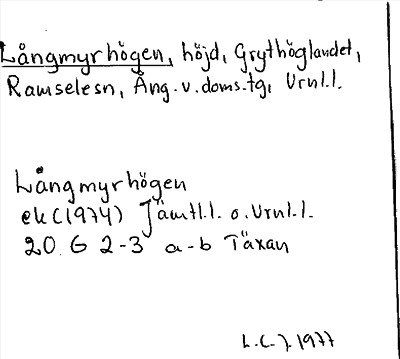 Långmyrhögen, höjd, Grythöglandet,
Ramselesn, Ång. v. doms.tg, Vrnl.l.
Långmyrhögen
ek (1974) Jämtl.l. o. Vrnl.l.
20 G 2-3 a-b Täxan
L.C.J. 1977